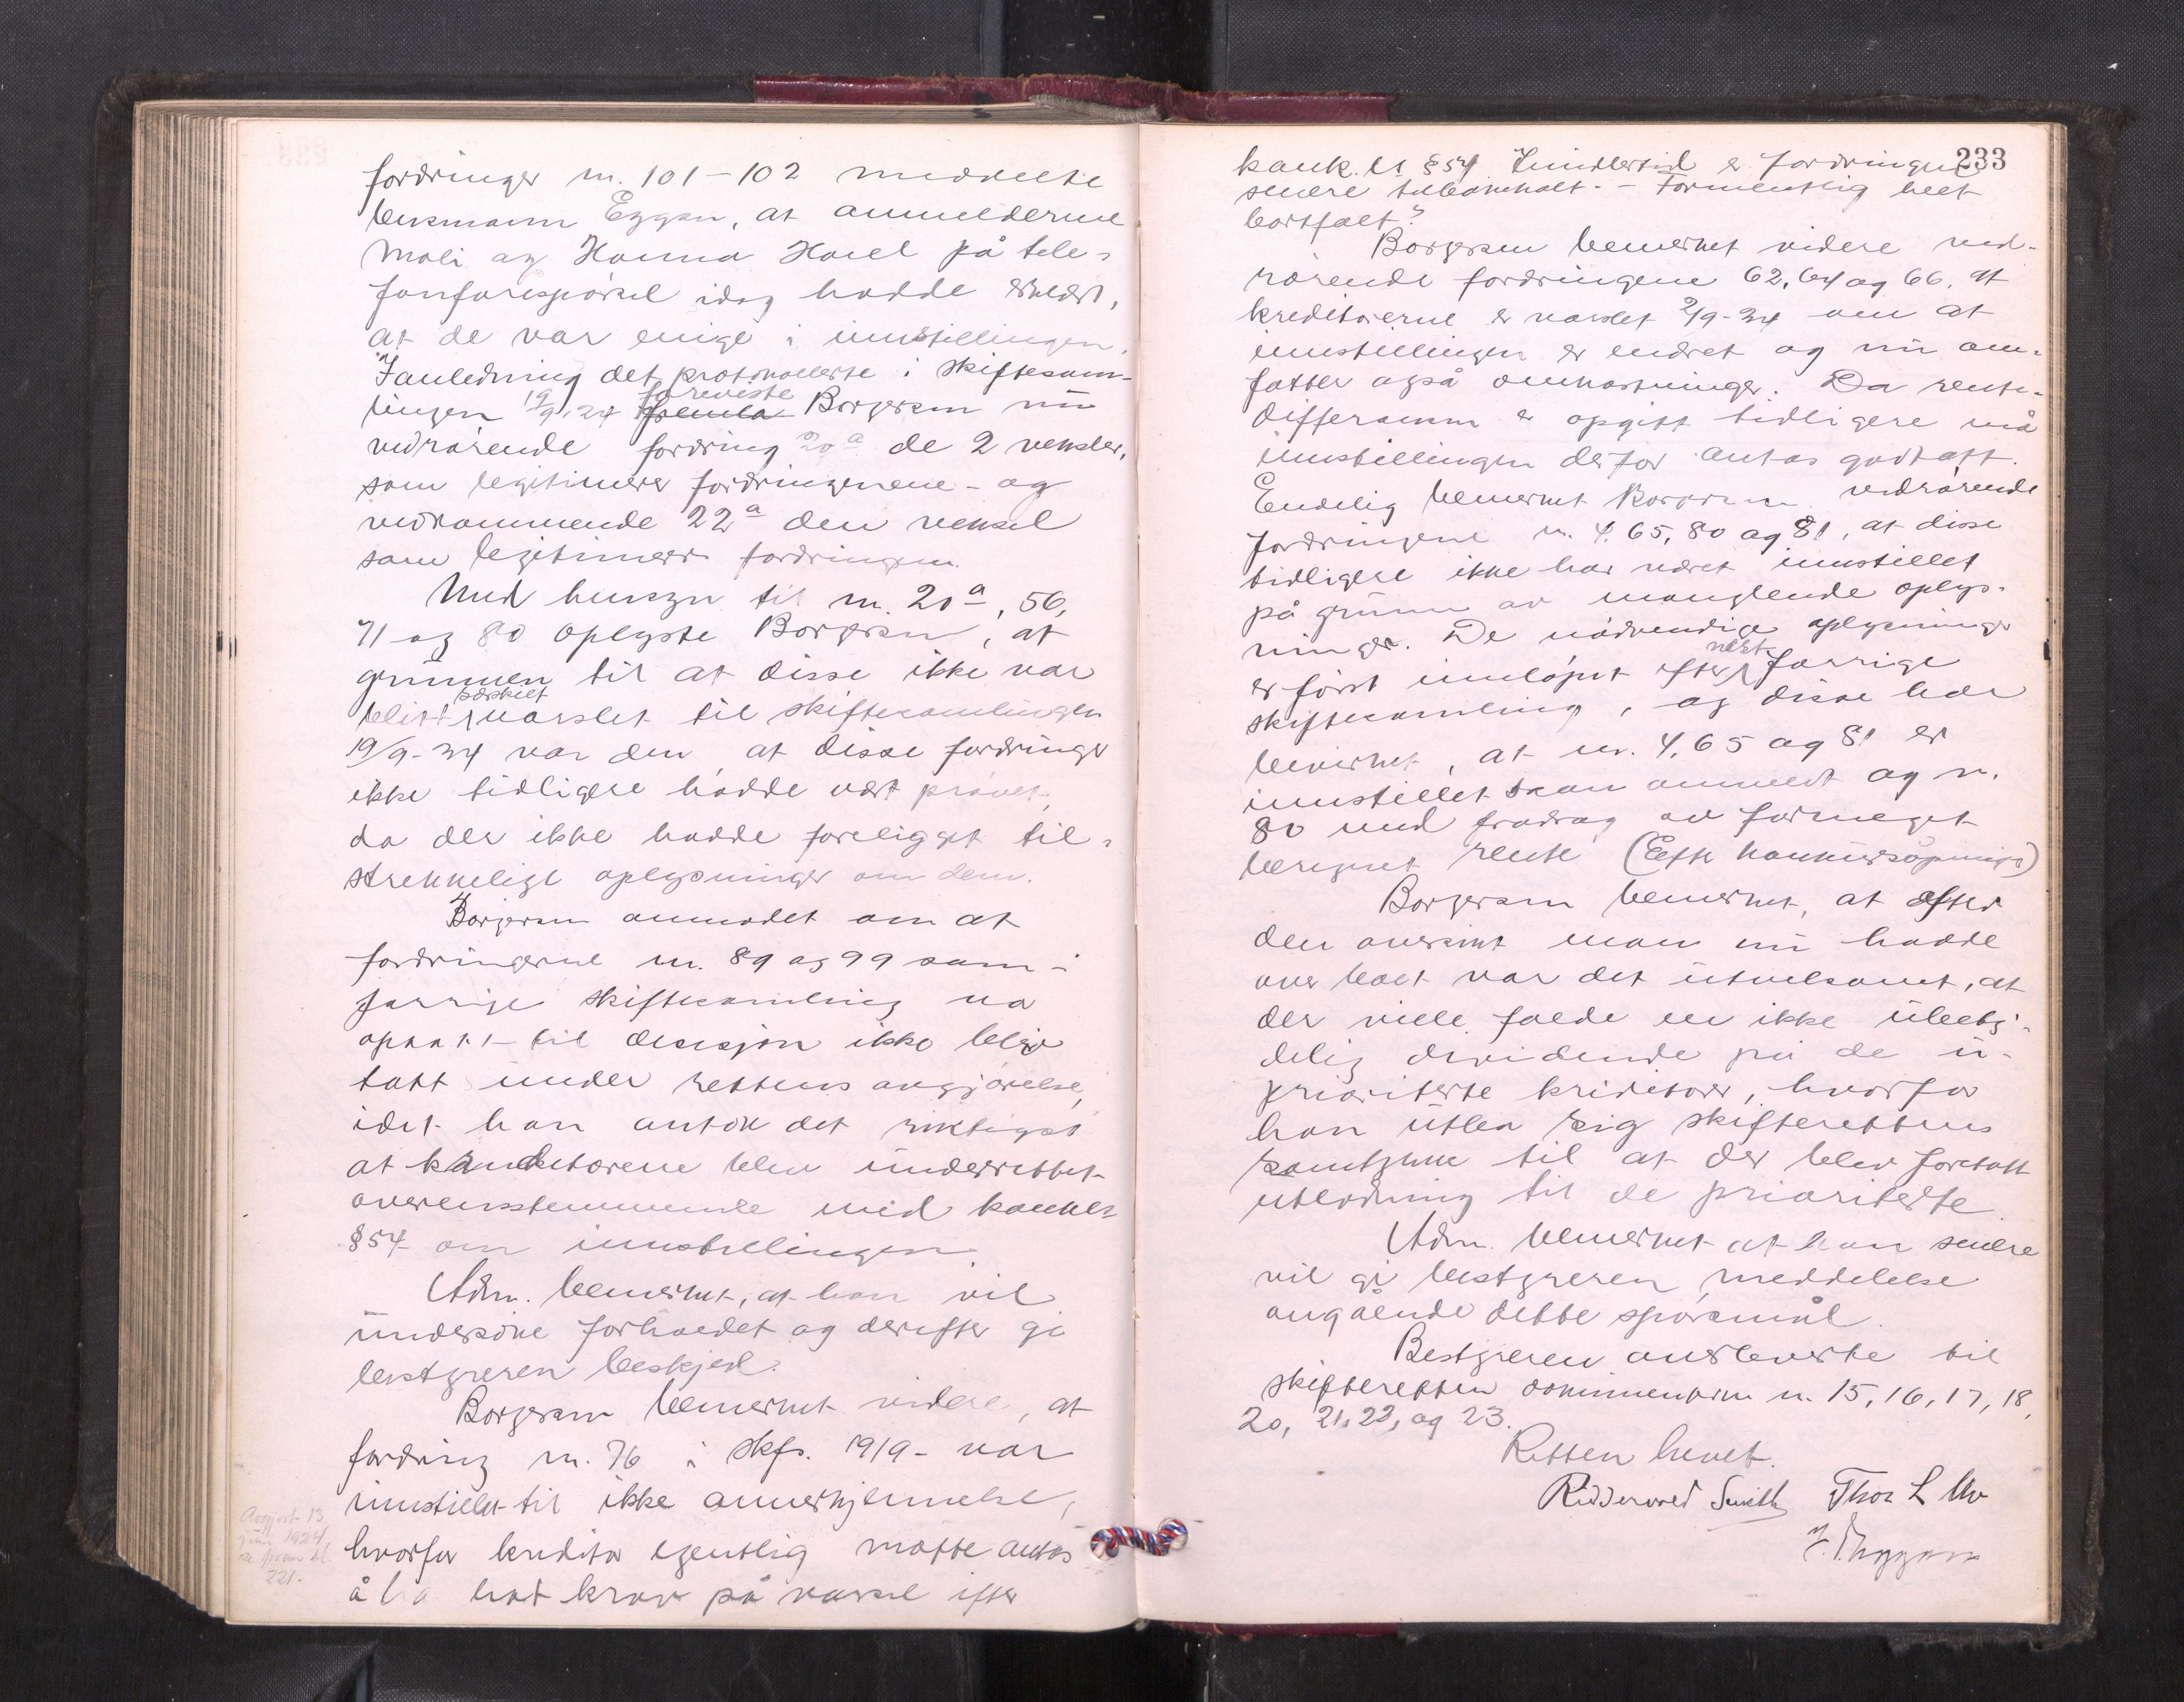 fordringer nr. 101-102 meddelte
lensmann Eggan, at anmelderne
Moli og Hanna Havel på tele-
fonforespörsel idag hadde erklært,
at de var enige i innstillingen.
I anledning det protokollerte i skiftesam-
lingen 19/9.34 foreviste Borgersen nu
vedrörende fordring 20a de 2 veksler,
som legitimerer fordringenene - og
vedkommende 22a den veksel
som legitimerer fordringen.
Med hensyn til nr. 20a, 56,
71 og 80 oplyste Borgersen, at
grunnen til at disse ikke var
blitt særskilt varslet til skiftesamlingen
19/9-34 var den, at disse fordringer
ikke tidligere hadde vært prövet,
da der ikke hadde foreligget til-
strekkelige oplysninger om dem.
Borgersen anmodet om at
fordringerne nr. 89 og 99 som i
forrige skiftesamling var
optatt til desisjon ikke blev
tatt under rettens avgjörelse,
idet han antok det riktigst
at kreditorene blev underrettet
overensstemmende med konkl.
§ 54 om innstillingen.
Adm. bemerket, at han vil
undersöke forholdet og derefter gi
bestyreren beskjed.
Borgersen bemerket videre, at
fordring nr. 76 i skfs. 19/9- var
innstillet til ikke annerkjennelse,
hvorfor kreditor egentlig måtte antas
å ha hat krav på varsel efter
Avgjort 13
juni 1924
se foran bl.
221.
233
konk. l. § 54. Imidlertid er fordringen
senere tilbakeholt. - Formentlig helt
bortfalt?
Borgersen bemerket videre ved-
rörende fordringene 62, 64 og 66, at
kreditorerne er varslet 2/9-34 om at
innstillingen er endret og nu om-
fatter også omkostninger. Da rente-
differansen er opgitt tidligere må
innstillingen derfor antas godtatt.
Endelig bemerket Borgersen vedrörende
fordringene nr. 4, 65, 80 og 81, at disse
tidligere ikke har været innstillet
på grunn av manglende oplys-
ninger. De nödvendige oplysninger
er först innlöpet efter næst forrige
skiftesamling, og disse har
bevirket, at nr. 4, 65 og 81 er
innstillet som anmeldt og nr.
80 med fradrag av formeget
beregnet rente (Efter konkursåpning)
Borgersen bemerket, at efter
den oversikt man nu hadde
over boet var det utvilsomt, at
der ville falde en ikke übety-
delig dividende på de u-
prioriterte kreditorer, hvorfor
han utba sig skifterettens
samtykke til at der blev foretatt
utlodning til de prioriterte.
Adm. bemerket at han senere
vil gi bestyreren meddelelse
angående dette spörsmål.
Bestyreren overleverte til
skifteretten dokumentene nr. 15, 16, 17, 18,
20, 21, 22, og 23.
Retten hevet.
Ridderwold Smith Thor L